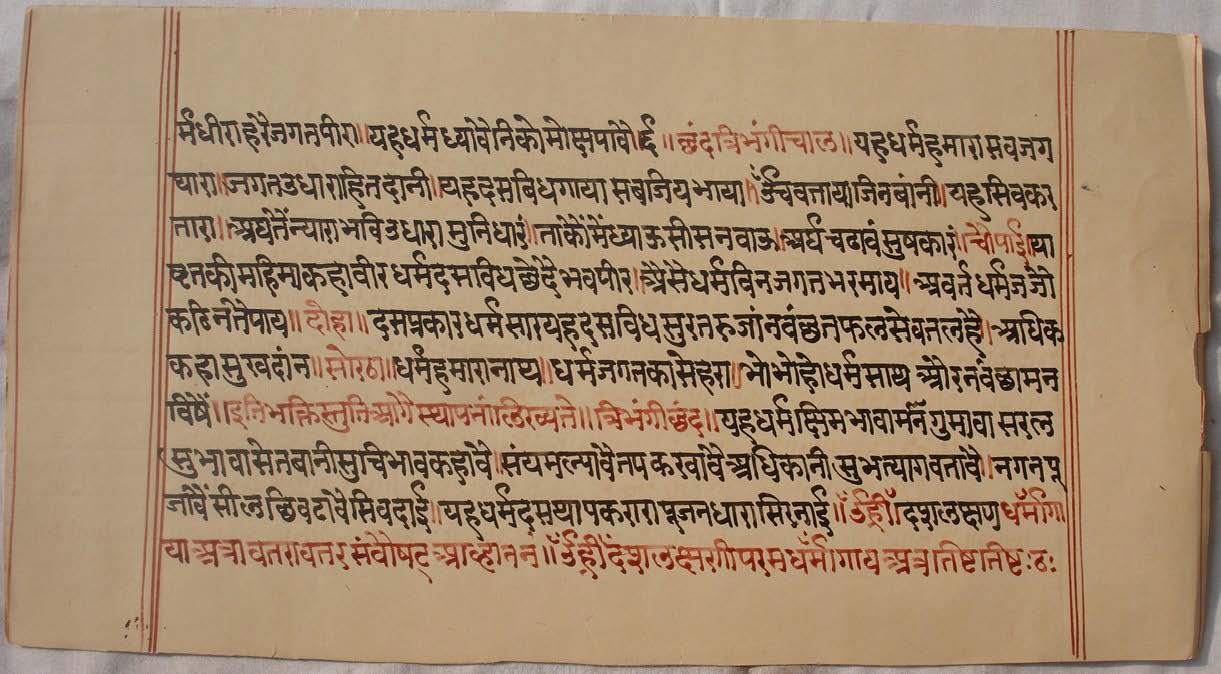 र्मधीराहरैजगतपीरा॥यहधर्मध्यावैनिकोमोक्षपावैर्दे॥छंदत्रिभंगीचाल॥यहधर्महमारासवजग
यारा॥जगतउधाराहितदानी॥यहदसबिधगायासबजियभाया॥ऊँचवताया॥जिनबांनी॥यहसिवकर
तारा॥अघतेंन्याराभविउधारासुनिधारं॥ताकोंमेंध्याऊसीसनवाऊ॥अर्घचढावंसुषकारं॥चौपाई॥या
ष्टतकीमहिमाकहावीरधर्मदसविधछेदैभवपीर॥अैसेधर्मविनजगतभरमाय॥अवर्तधर्मजजो
कठिनतेपाय॥दोहा॥दसप्रकारधर्मसारयहदसविधसुरतरुजांनवंछतफलसेवतलहै॥अधिक
कहासुखदांन॥सोरठा॥धर्महमारानाथ॥धर्मजगतकासेहरा॥भोभोहोधर्मसाथ औरनवंछामन
विषें॥इतिभक्तिस्तुतिआगैस्थापनांलिख्यते॥त्रिभंगीछंद॥यहधर्मक्षिमभावामनंगुमावा सरल
सुभावासतबानीसुचिभावकहावै॥संयमल्यावैतपकरवांवैअधिकानी सुभत्यागवतावै॥नगनपू
जांवैंसीलछिवटावैसिवदाई॥यहधर्मदसथापकरारापूजनधारासिरनाई॥ॐह्रीँदशलक्षणधर्मांगा
याअत्रावतरावतरसंवौषटआव्हाननं॥ॐह्रीँदशलक्षणीपरमधर्मांगायअत्रातिष्टातिष्टःठः